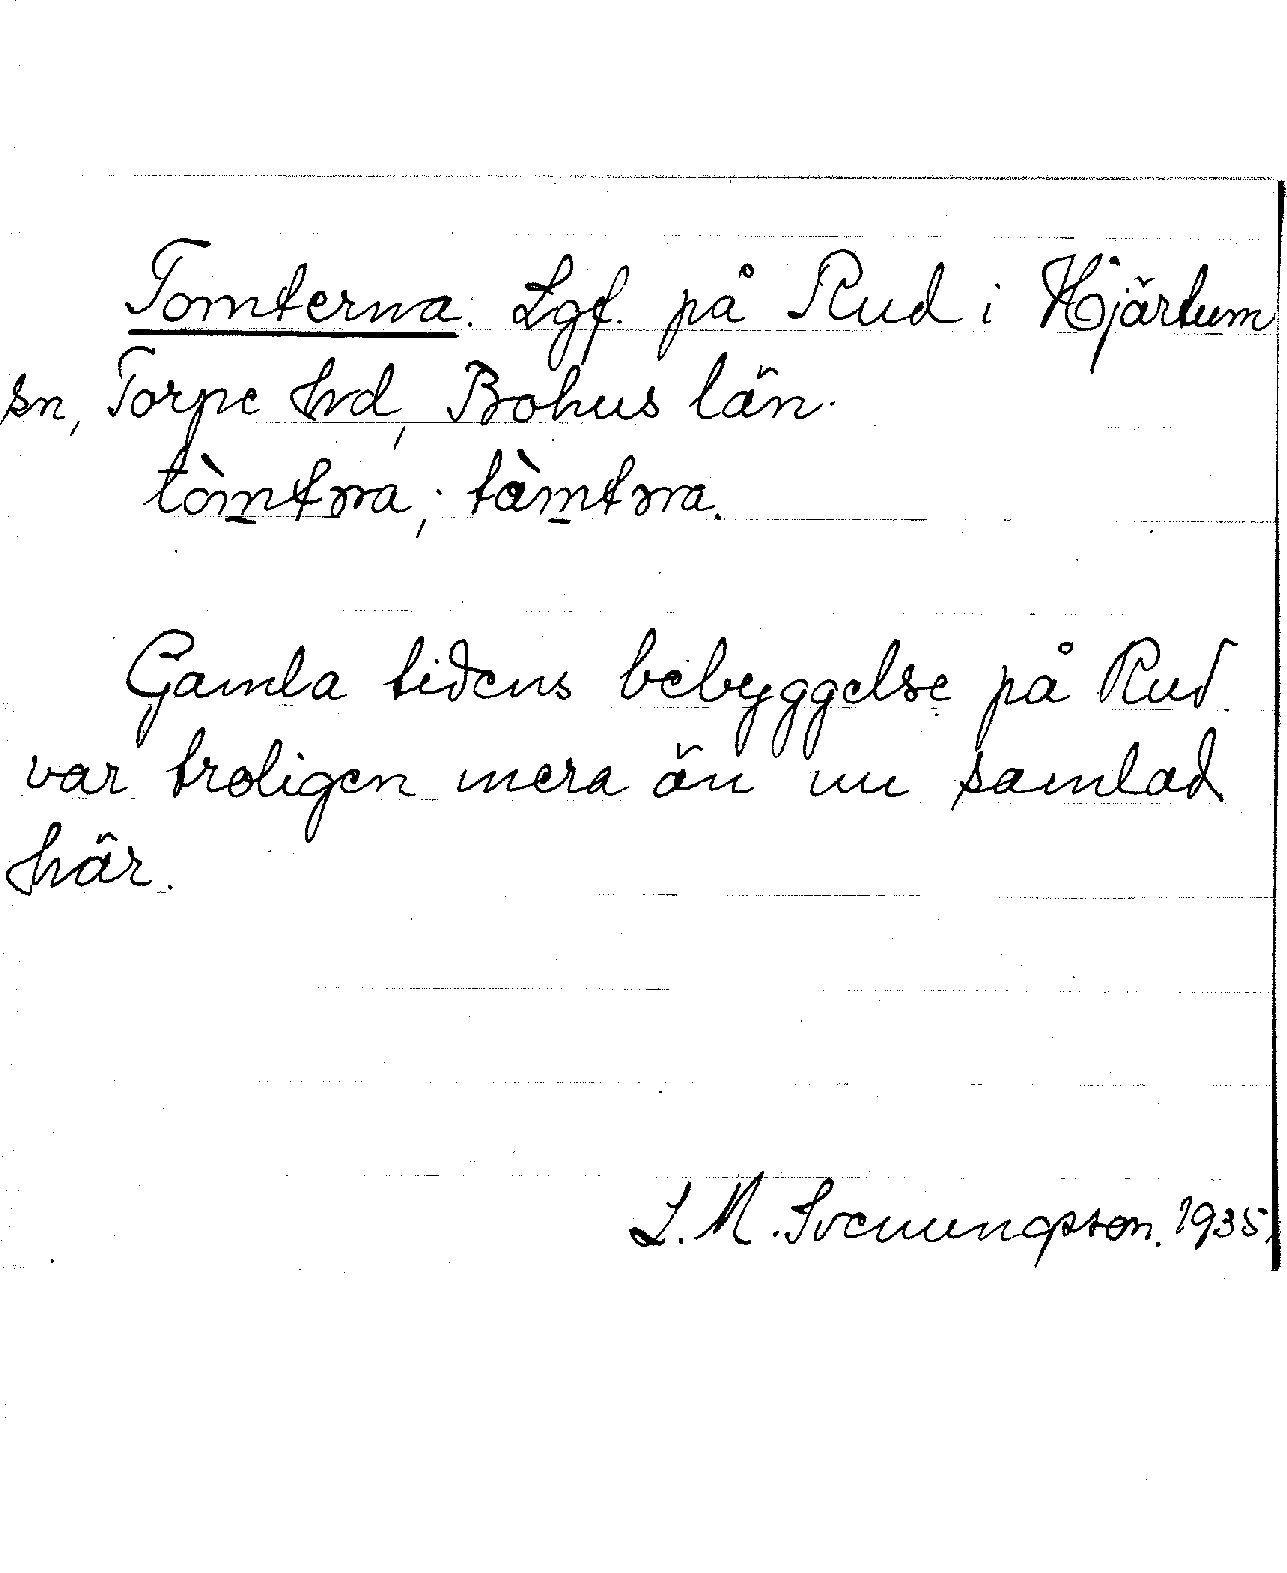 Tomterna. Lgf. på Rud i Hjärtum
sn, Torpe hrd, Bohus län.
Gamla tidens bebyggelse på Rud
var troligen mera än nu samlad
här.
L. M. Svenungsson. 1935.